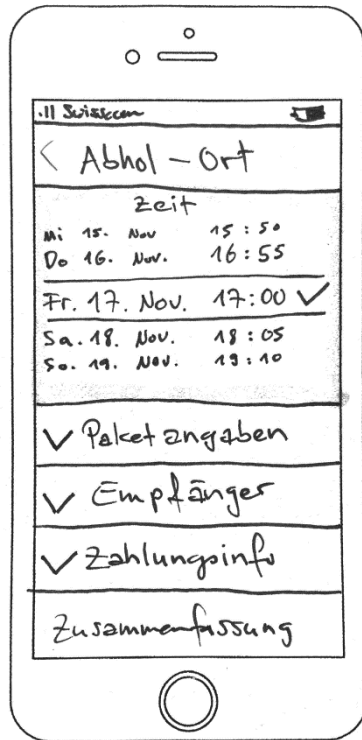 .ıl Swisscom
< Abhol - Ort
Zeit
Mi 15. Nov 15:50
Do 16. Nov. 16:55
Fr. 17. Nov. 17:00 ✓
Sa. 18. Nov. 18:05
So. 19. Nov. 19:10
✓ Paketangaben
✓ Empfänger
✓ Zahlungsinfo
Zusammenfassung